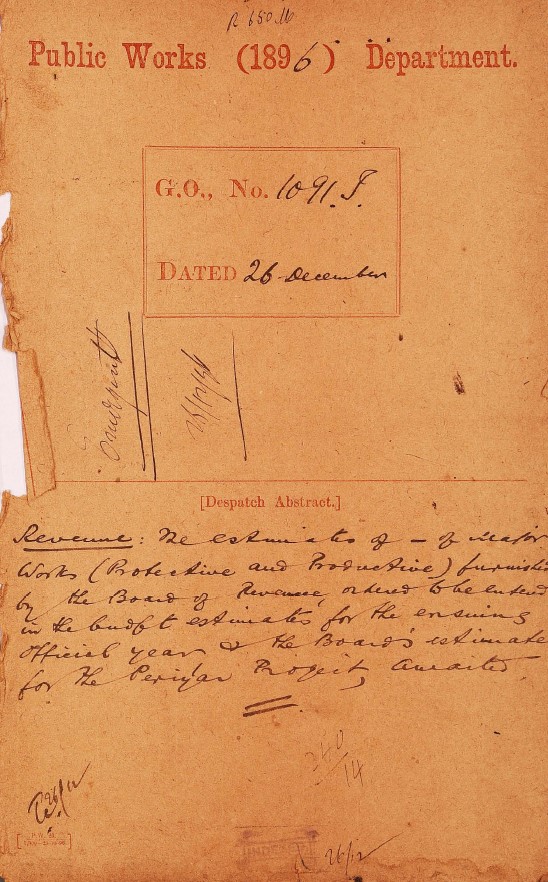 R 650
Public Works (1896) Department.
G.O., No. 1091. I.
DATED 26 December
26/12/96
[Despatch Abstract.]
Revenue: The estimates of – of Major
Works (Protective and Productive) furnishe
by the Board of Revenue, ordered to be entered
in the budget estimates for the ensuing
official year & the Board's estimate
for the Periyar Project, awaited
240/14
26/12
INDEXED
26/12